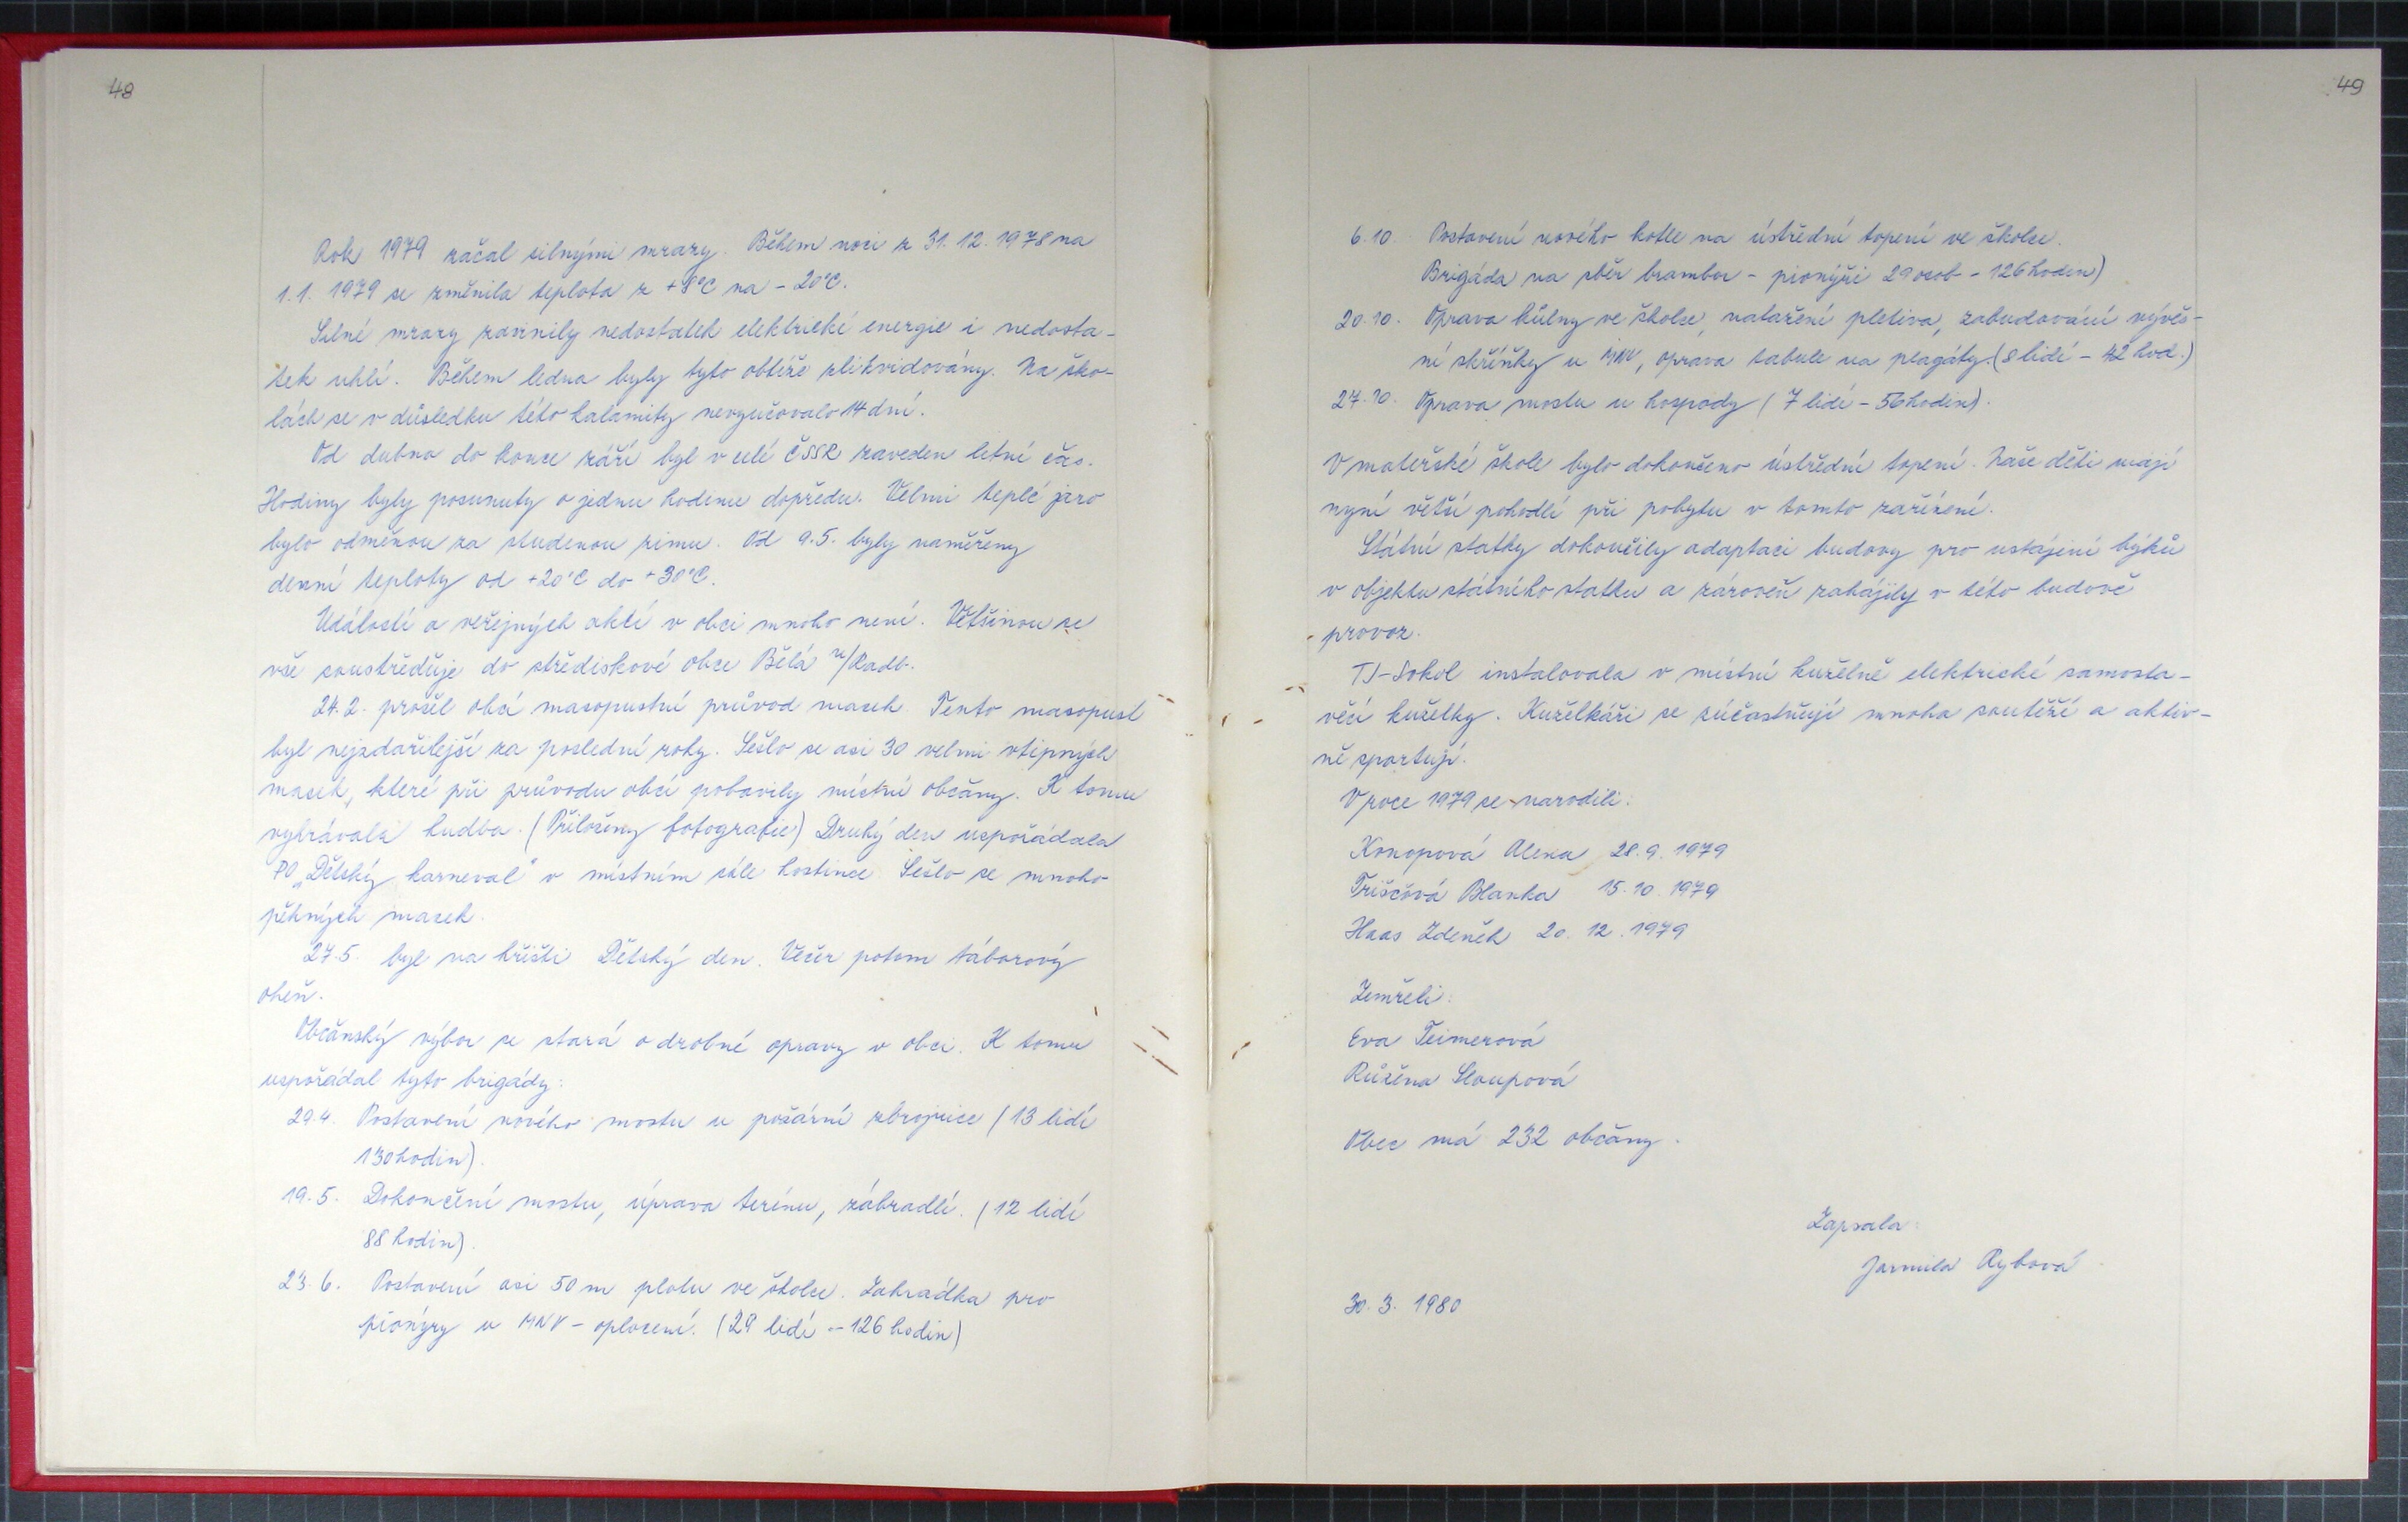 48
Rok 1979 začal silnými mrazy. Během noci z 31. 12. 1978 na
1. 1. 1979 se změnila teplota z +8°C na - 20°C.
Silné mrazy zavinily nedostatek elektrické energie i nedosta-
tek uhlí. Během ledna byly tyto obtíže zlikvidovány. Na ško-
lách se v důsledku této kalamity nevyučovalo 14 dní.
Od dubna do konce září byl v celé ČSSR zaveden letní čas.
Hodiny byly posunuty o jednu hodinu dopředu. Velmi teplé jaro
bylo odměnou za studenou zimu. Od 9. 5. byly naměřeny
denní teploty od +20°C do +30°C.
Událostí a veřejných akcí v obci mnoho není. Většinou se
vše soustřeďuje do střediskové obce Bělá n/Radb.
24. 2. prošel obcí masopustní průvod masek. Tento masopust
byl nejzdařilejší za poslední roky. Sešlo se asi 30 velmi vtipných
masek, které při průvodu obcí pobavily místní občany. K tomu
vyhrávala hudba. (Přiloženy fotografie) Druhý den uspořádala
PO „Dětský karneval" v místním sále hostince. Sešlo se mnoho
pěkných masek.
27. 5. byl na hřišti Dětský den. Večer potom táborový
oheň.
Občanský výbor se stará o drobné opravy v obci. K tomu
uspořádal tyto brigády:
29. 4. Postavení nového mostu u požární zbrojnice (13 lidí
130 hodin).
19. 5. Dokončení mostu, úprava terénu, zábradlí. (12 lidí
88 hodin).
23. 6. Postavení asi 50 m plotu ve školce. Zahrádka pro
pionýry u MNV - oplocení. (29 lidí - 126 hodin)
49
6. 10. Postavení nového kotle na ústřední topení ve školce.
Brigáda na sběr brambor - pionýři 29 osob - 126 hodin)
20. 10. Oprava kůlny ve školce, natažení pletiva, zabudování vývěs-
ní skříňky u MNV, oprava tabule na plagáty. (8 lidí - 42 hod.)
27. 10. Oprava mostu u hospody (7 lidí - 56 hodin).
V mateřské škole bylo dokončeno ústřední topení. Naše děti mají
nyní větší pohodlí při pobytu v tomto zařízení.
Státní statky dokončily adaptaci budovy pro ustájení býků
v objektu státního statku a zároveň zahájily v této budově
provoz.
TJ-Sokol instalovala v místní kuželně elektrické samosta-
věcí kuželky. Kuželkáři se zúčastňují mnoha soutěží a aktiv-
ně sportují.
V roce 1979 se narodili:
Konopová Alena 28. 9. 1979
Triščová Blanka 15. 10. 1979
Haas Zdeněk 20. 12. 1979
Zemřeli:
Eva Teimerová
Růžena Sloupová
Obec má 232 občany.
Zapsala:
Jarmila Rybová
30. 3. 1980